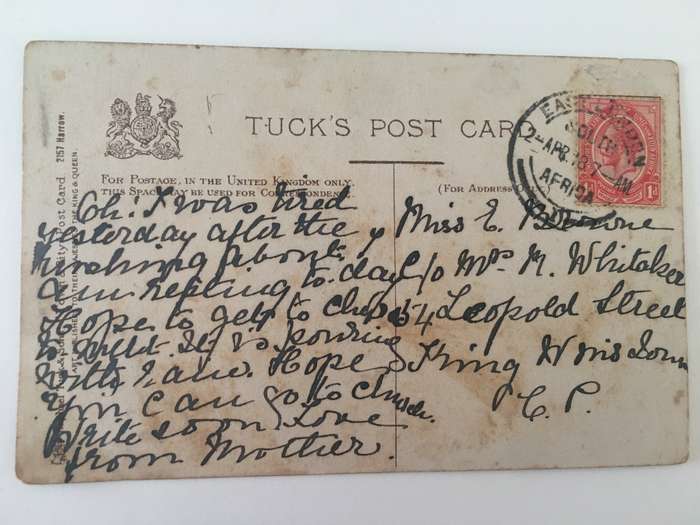 TUCK'S POST CARD
FOR POSTAGE, IN THE UNITED KINGDOM ONLY,
THIS SPACE MAY BE USED FOR CORRESPONDENCE
(FOR ADDRESS ONLY.)
Post Card 2157 Harrow.
THE KING & QUEEN.
EAST LONDON
2-APR.18 7-AM
AFRICA
1D
Oh! I was tired
yesterday after the
rushing about
am resting to-day
Hope to get to church
to-night. It is pouring
with rain. Hope
you can go to church.
Write soon Love
from Mother.
Miss E.
C/o Mrs M. Whitaker
54 Leopold Street
King Wms Town
C. P.